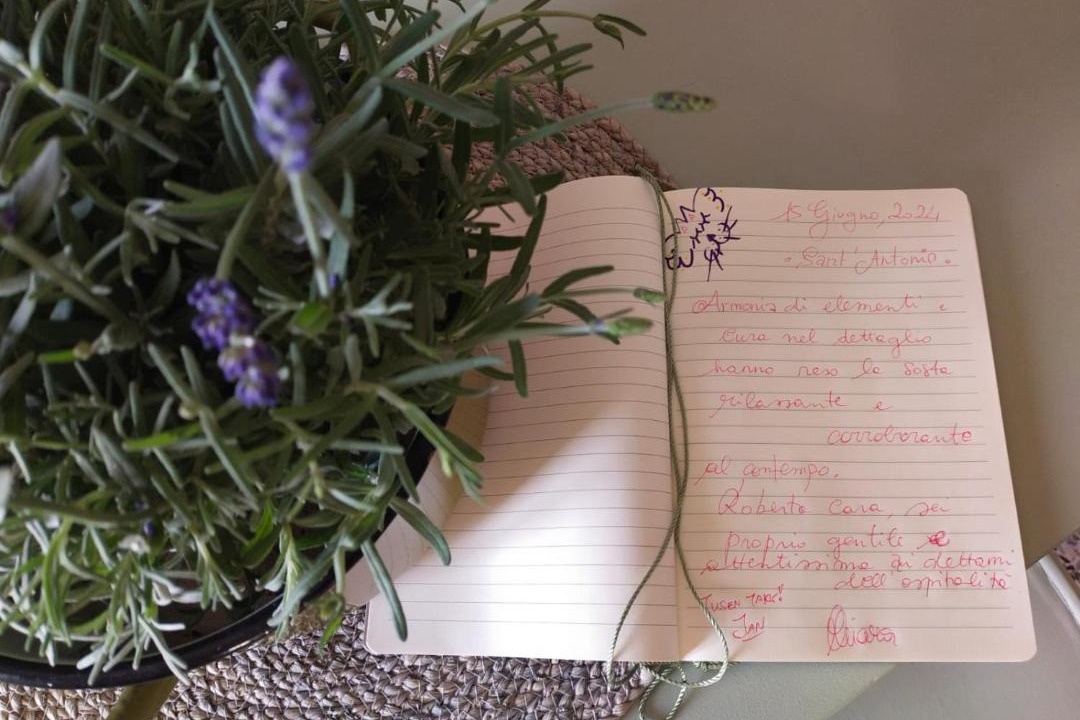 15 Giugno, 2024
· Sant'Antonio ·
Armonia di elementi e
Cura nel dettaglio
hanno reso la Sosta
rilassante e
corroborante
al contempo.
Roberta Cara sei
proprio gentile e
attentissima ai dettami
dell'ospitalità
TUSEN TAKK!
JAN
Chiara